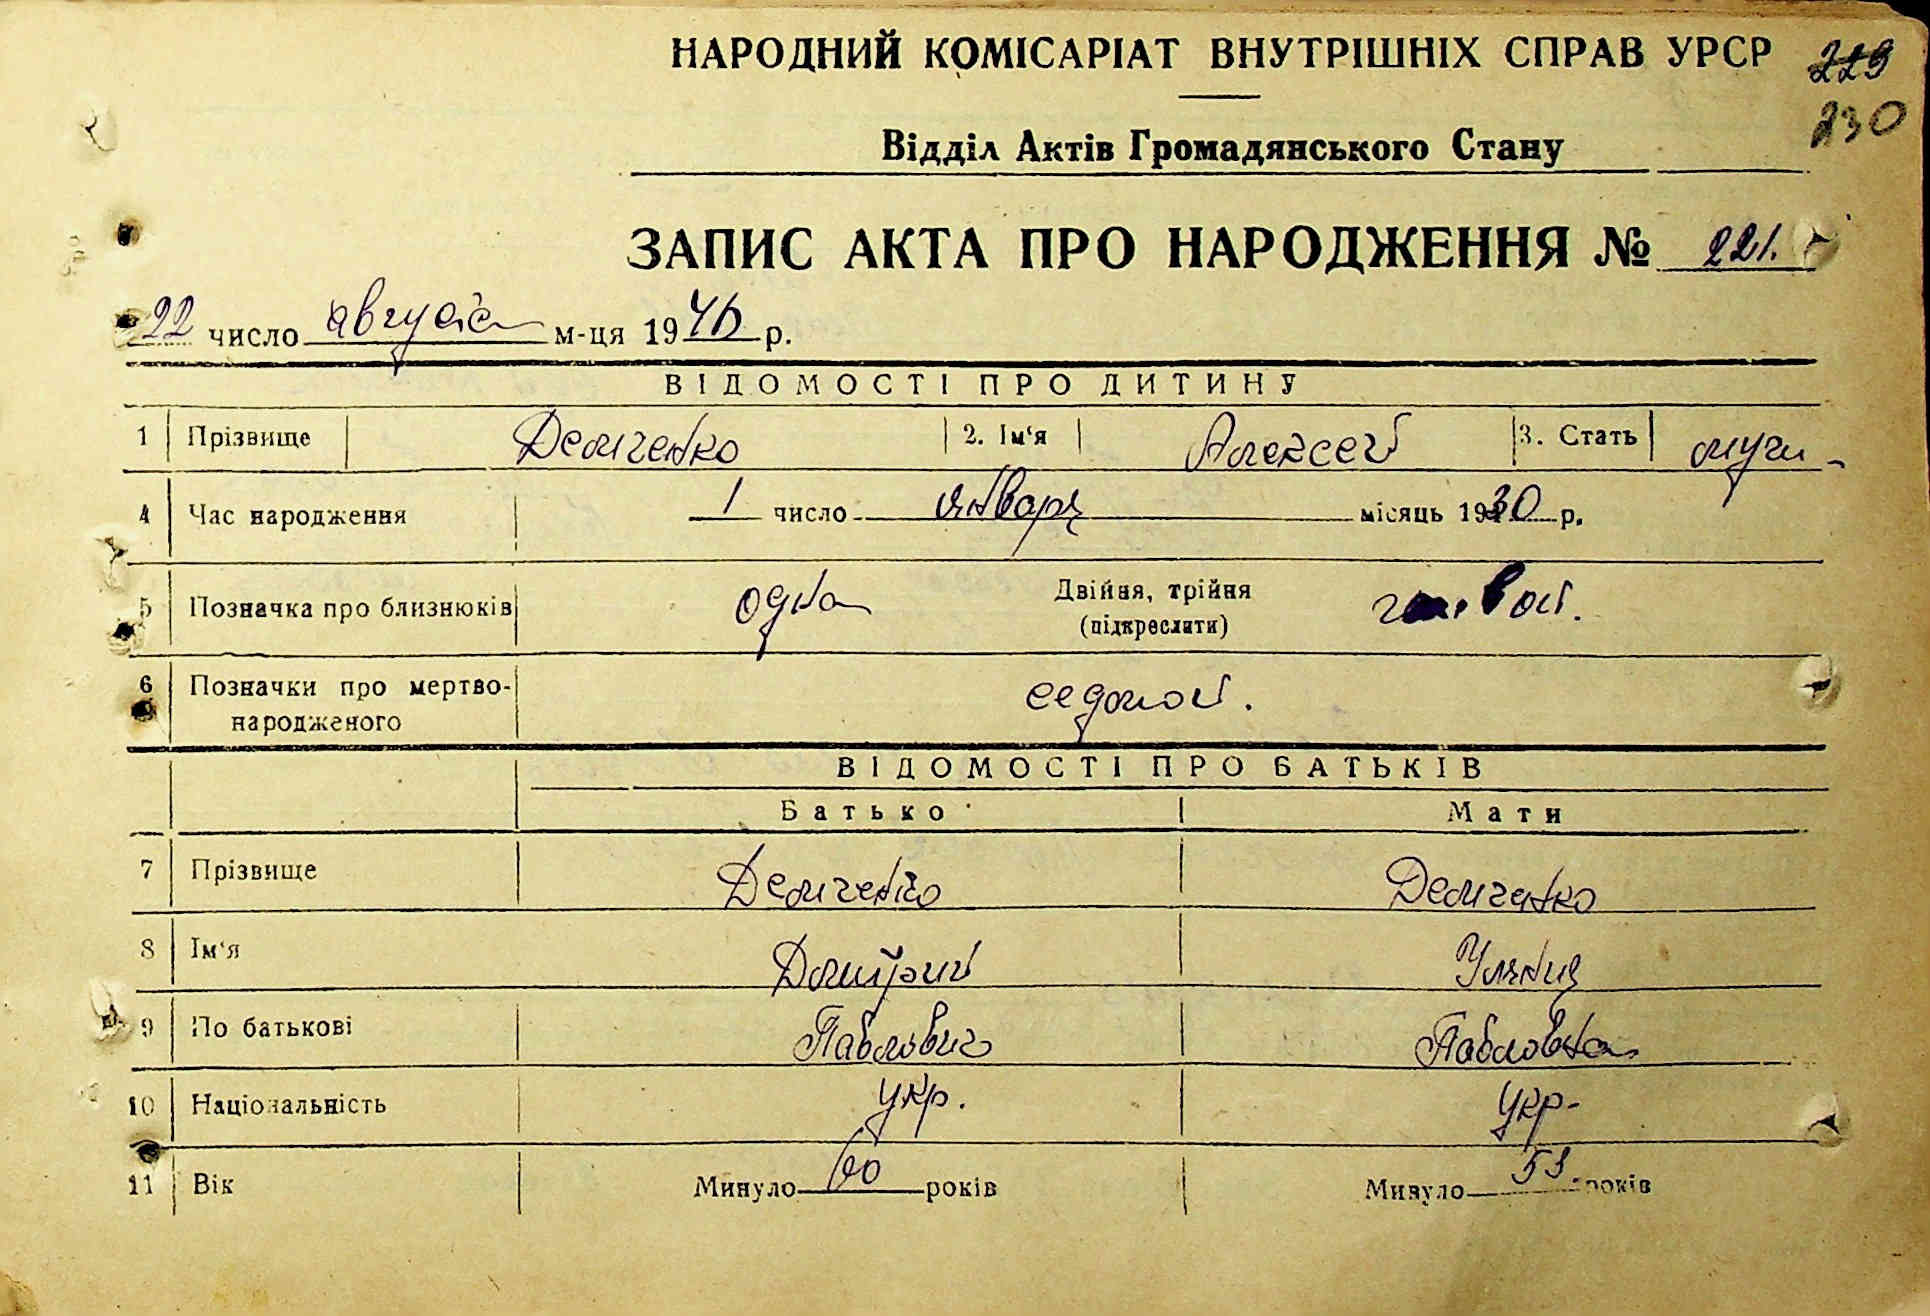 НАРОДНИЙ КОМІСАРІАТ ВНУТРІШНІХ СПРАВ УРСР 229
230
Відділ Актів Громадянського Стану
ЗАПИС АКТА ПРО НАРОДЖЕННЯ № 221.
22 число августа м-ця 1946 р.
ВІДОМОСТІ ПРО ДИТИНУ
1 Прізвище Демченко 2. Ім'я Алексей 3. Стать
4 Час народження 1 число января місяць 1930 р.
5 Позначка про близнюків одна Двійня, трійня
(підкреслити)
6 Позначки про мертво-
народженого
ВІДОМОСТІ ПРО БАТЬКІВ
Батько Мати
7 Прізвище Демченко Демченко
8 Ім'я Дмитрий Уляния
9 По батькові Павлович Павловна
10 Національність укр. укр-
11 Вік Минуло 60 років Минуло 53 років